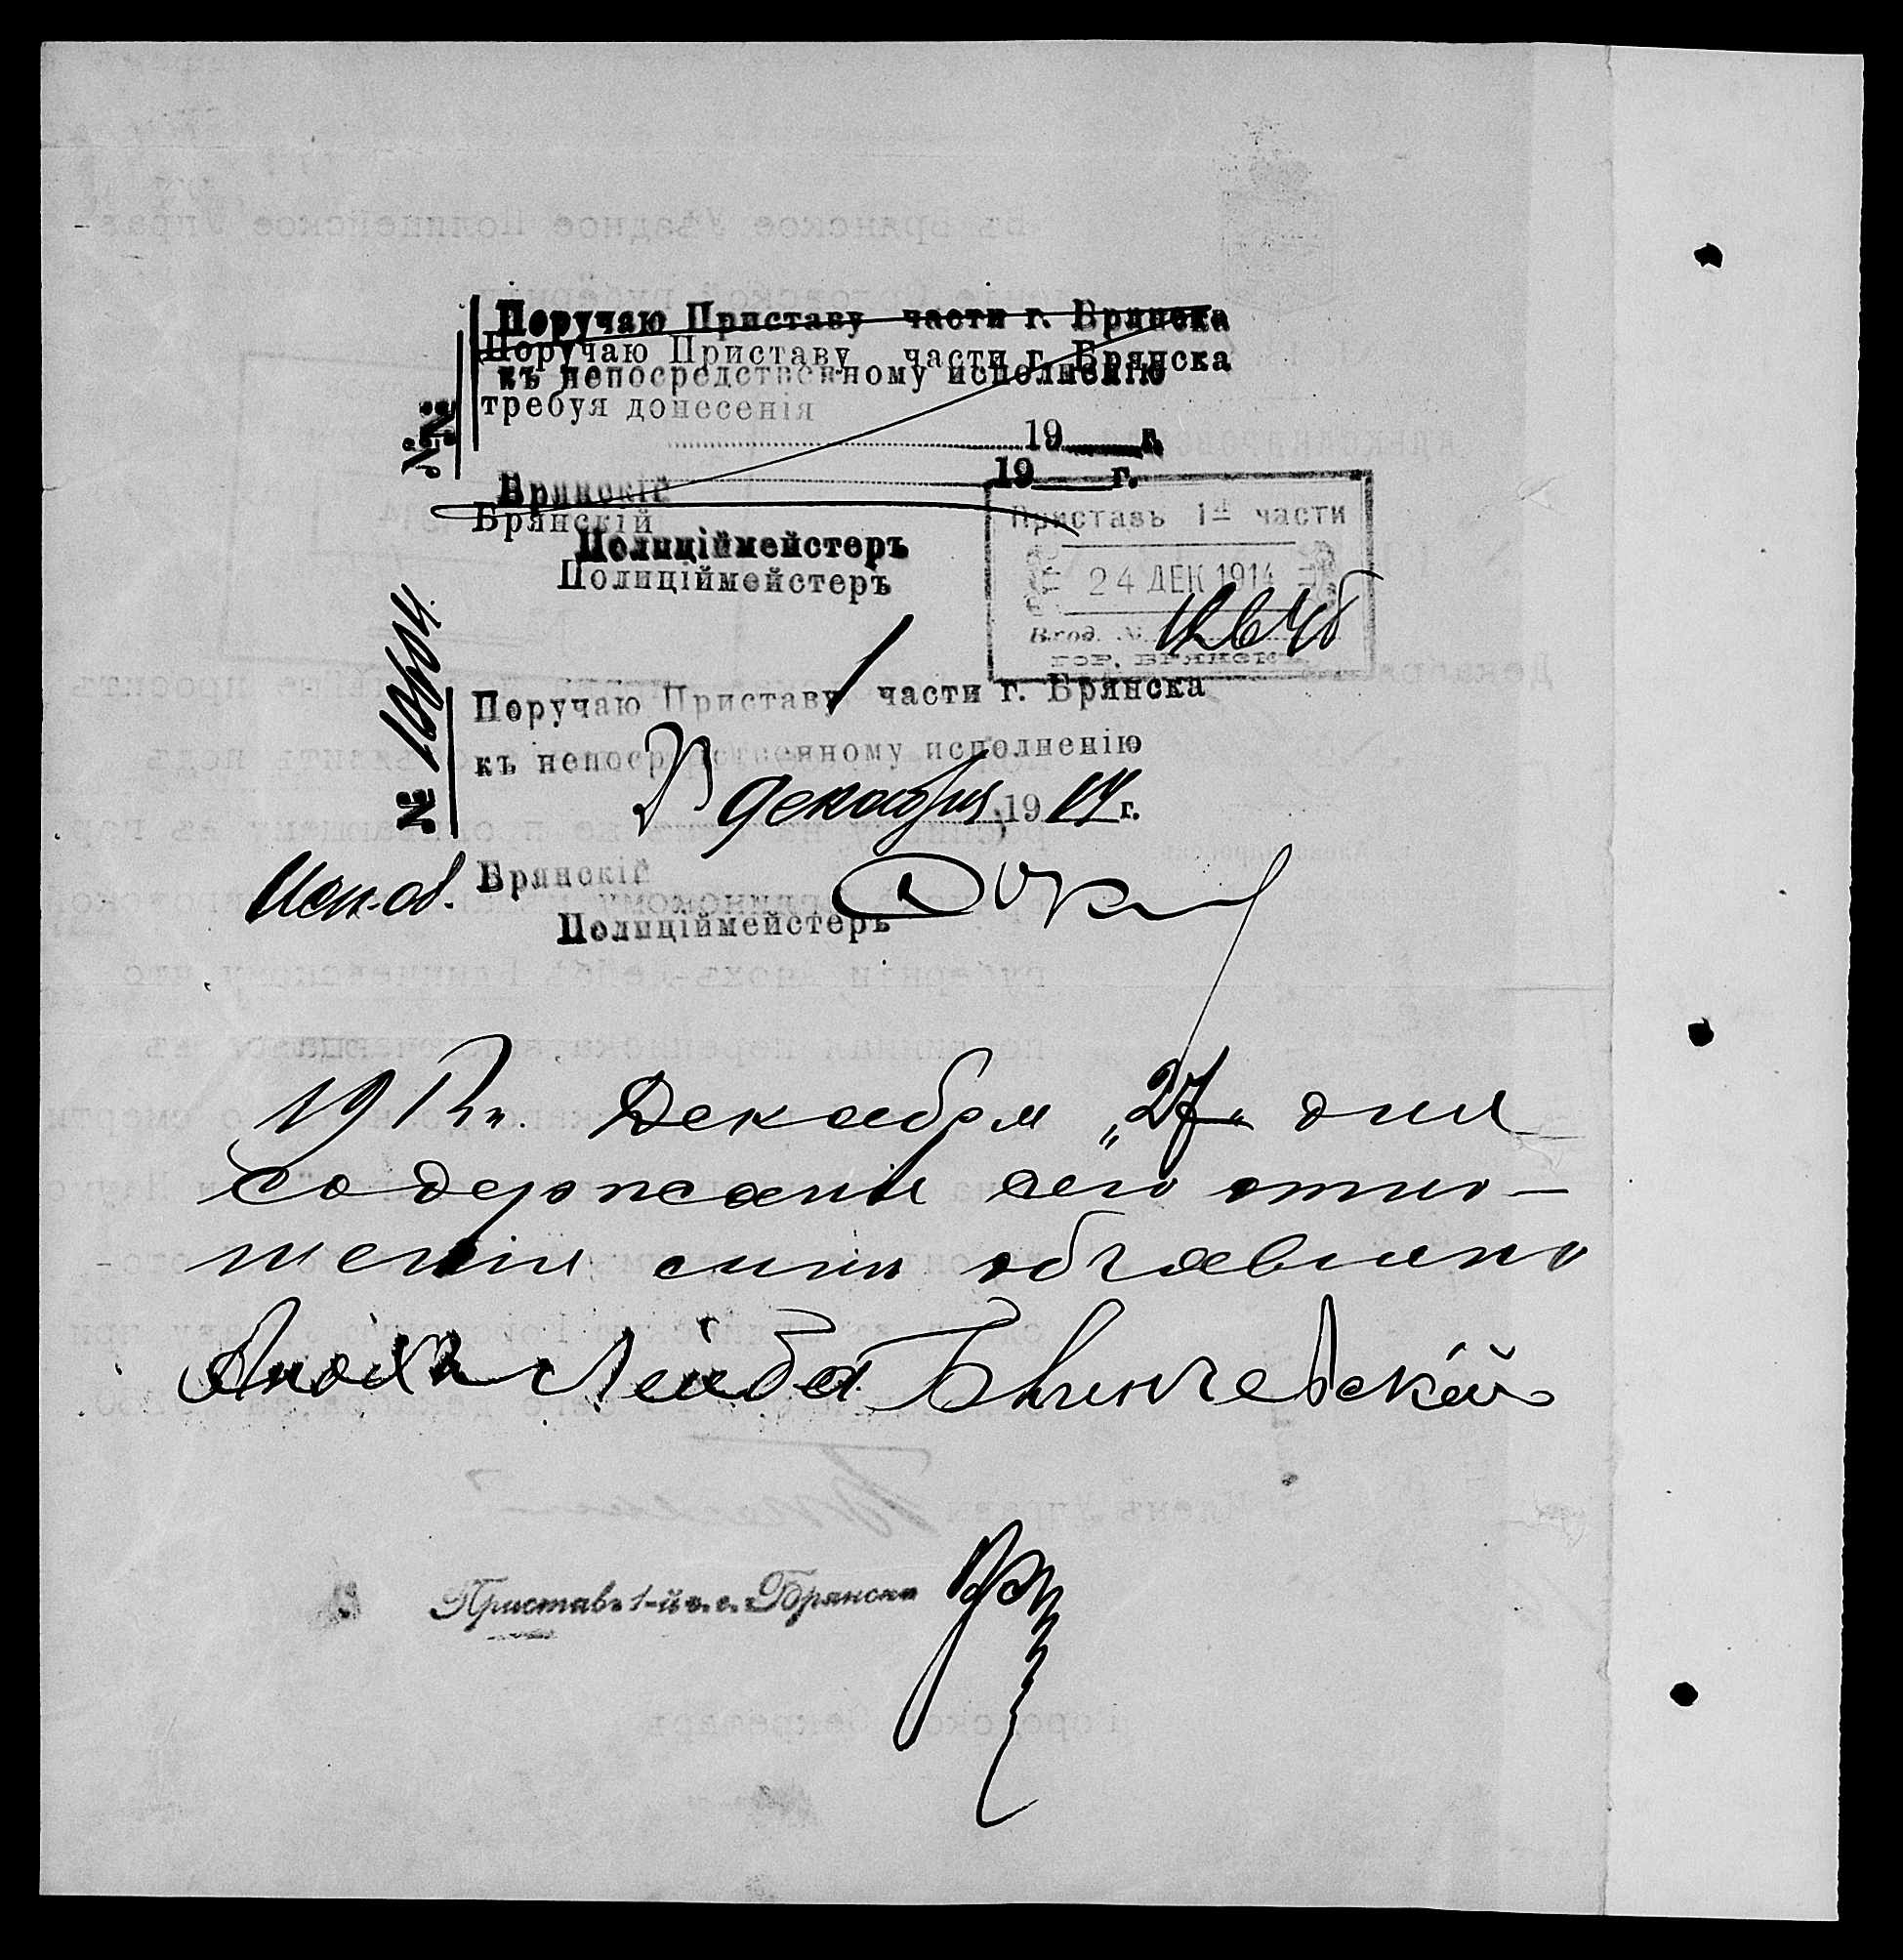 Поручаю Приставу части г. Брянска
Поручаю Приставу части г. Брянска
къ непосредственному исполненію
требуя донесенія
№
№
19 г.
19 г.
Брянскій
Брянскій
Полиціймейстеръ
Полиціймейстеръ
Приставъ 1й части
24 ДЕК 1914
Вход. №
ГОР. БРЯНСКЪ
№
Поручаю Приставу 1 части г. Брянска
къ непосредственному исполненію
декабря 1914 г.
Исп. об. Брянскій
Полиціймейстеръ
Декабря „27" дня
содержаніе сего отно-
шенія мнѣ объявлено
Лейба
Приставъ 1-й ч. г. Брянска